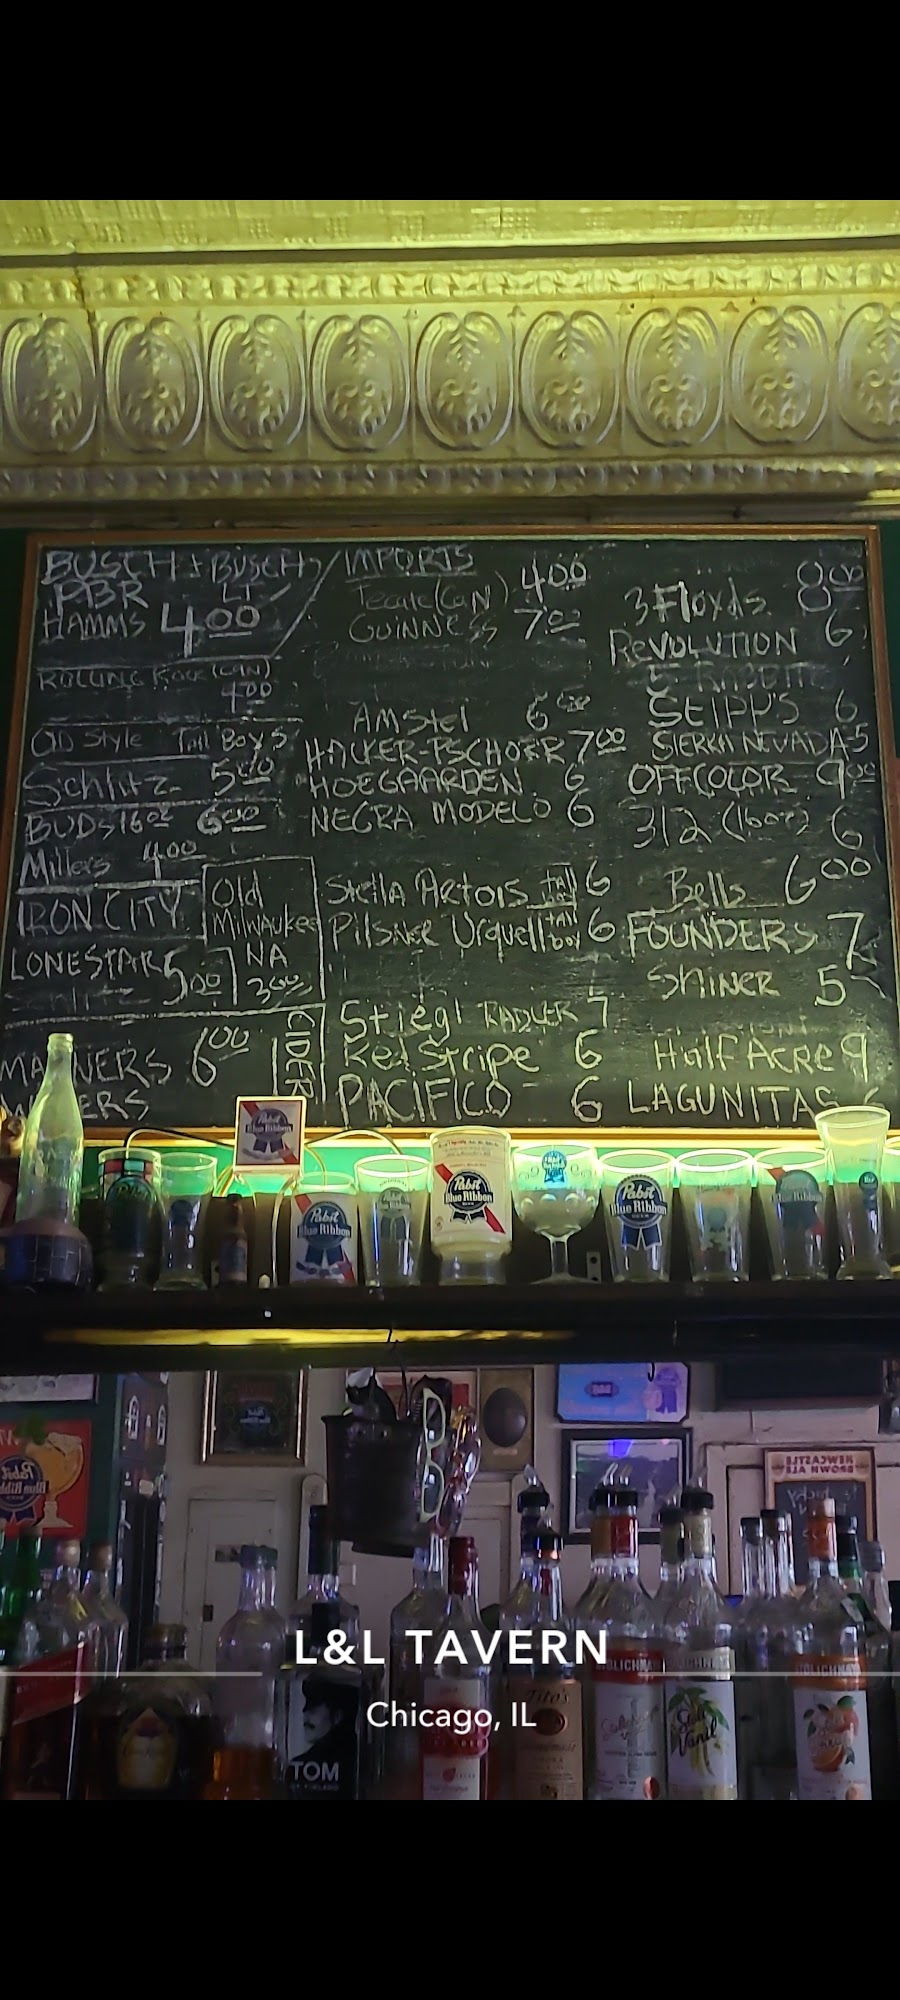 BUSCH + BUSCH LT
PBR
HAMMS 4.00
ROLLING ROCK (CAN)
4.00
Old Style Tall Boys
Schlitz 5.00
BUDS 16oz 6.00
Millers 4.00
IRON CITY
LONESTAR 5.00
Old
Milwaukee
NA
3.00
6.00
CIDER
IMPORTS
Tecate (CAN) 4.00
GUINNESS 7.00
AMStel 6.00
HACKER-PSCHORR 7.00
HOEGAARDEN 6
NEGRA MODELO 6
Stella Artois tall 6
Pilsner Urquell tall boy 6
Stiegl RADLER 7
Red Stripe 6
PACIFICO 6
8.00
3 Floyds 8
REVOLUTION 6
5 RABBIT
STIPP'S 6
SIERRA NEVADA 5
OFFCOLOR 9.00
312 (16oz) 6
Bells 6.00
FOUNDERS 7
SHINER 5
Half Acre 9
LAGUNITAS 6
Pabst
Blue Ribbon
Pabst
Blue Ribbon
Pabst
Blue Ribbon
Pabst
Blue Ribbon
Pabst
Blue Ribbon
NEWCASTLE
BROWN ALE
L&L TAVERN
Chicago, IL
TOM
Tito's
Stoli
Vanil